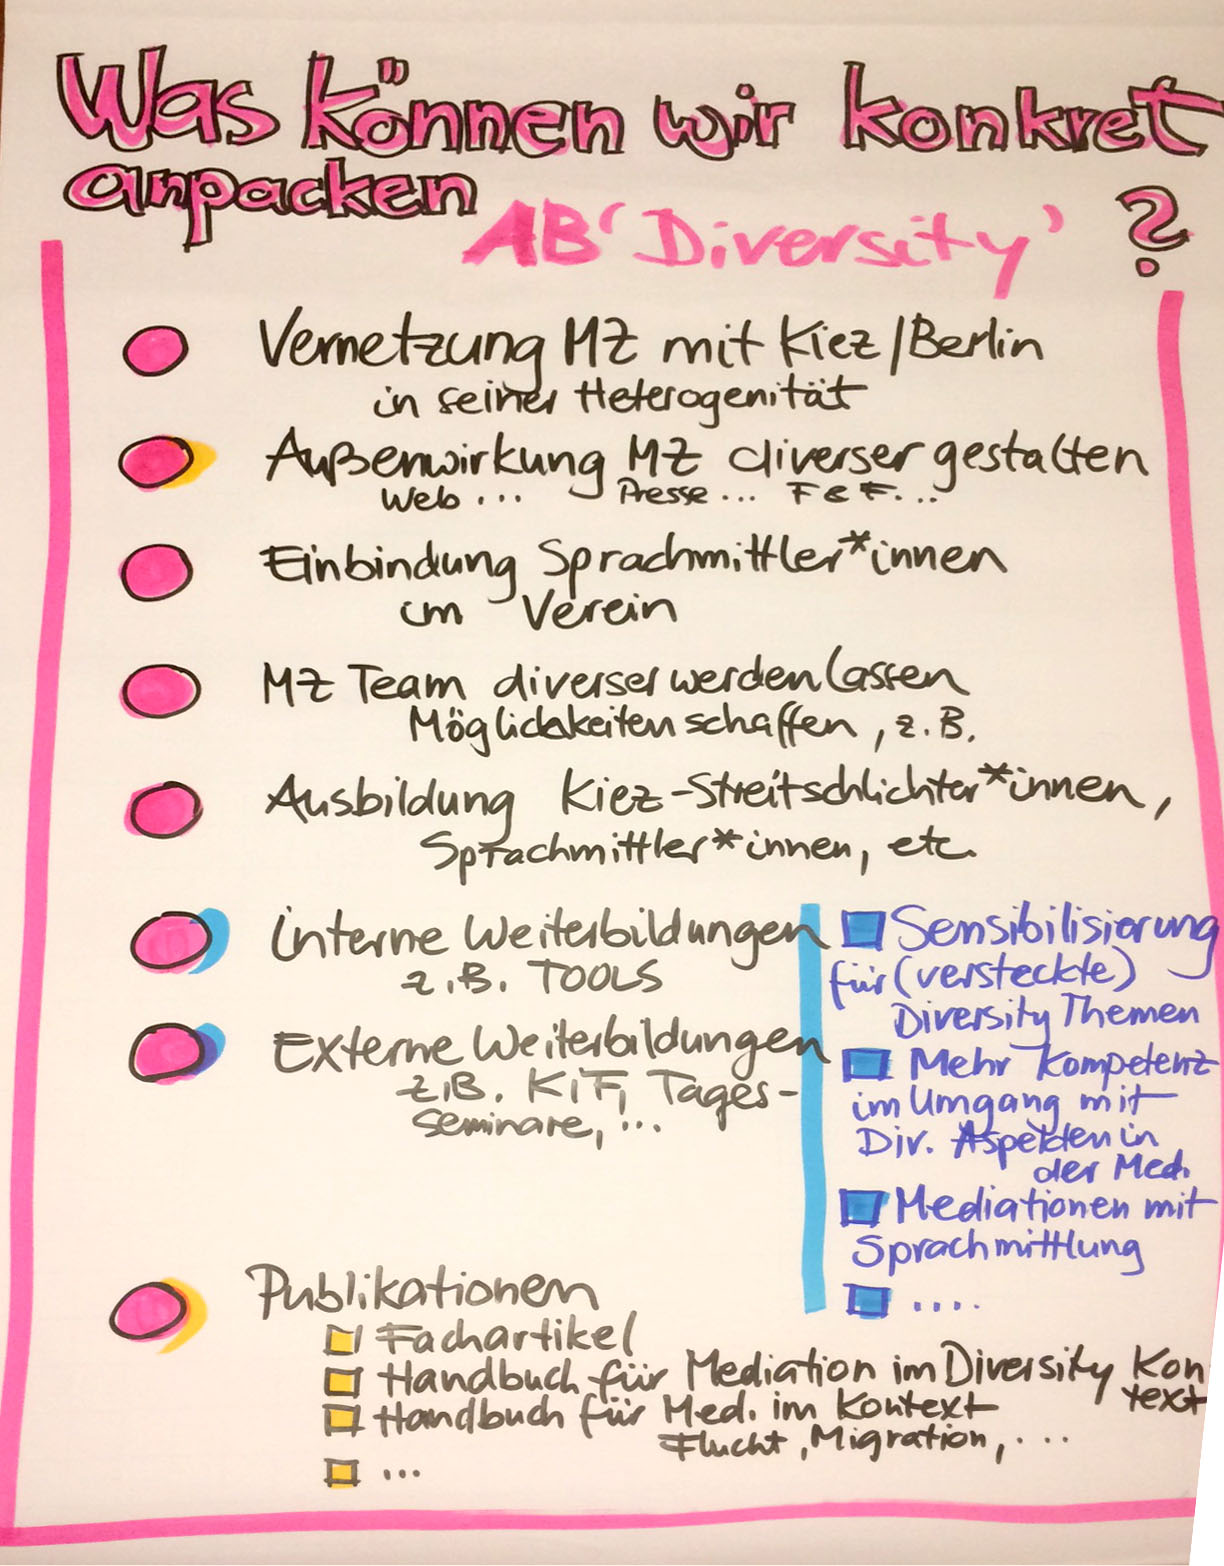 Was können wir konkret
anpacken ?
AB 'Diversity'
Vernetzung MZ mit Kiez/Berlin
in seiner Heterogenität
Außenwirkung MZ diverser gestalten
Web ... Presse ... F & F...
Einbindung Sprachmittler*innen
im Verein
MZ Team diverser werden lassen
Möglichkeiten schaffen, z.B.
Ausbildung Kiez-Streitschlichter*innen,
Sprachmittler*innen, etc.
interne Weiterbildungen
z.B. TOOLS
Externe Weiterbildungen
z.B. KiT, Tages-
seminare, ...
Sensibilisierung
für (versteckte)
Diversity Themen
Mehr Kompetenz
im Umgang mit
Div. Aspekten in
der Med.
Mediationen mit
Sprachmittlung
....
Publikationen
Fachartikel
Handbuch für Mediation im Diversity Kon
text
Handbuch für Med. im Kontext
Flucht, Migration, ...
...